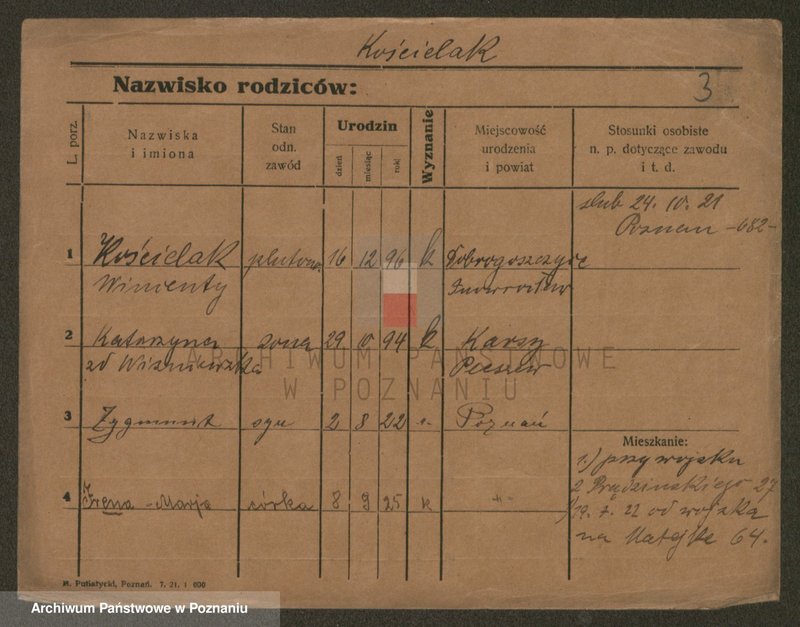 Kościelak
Nazwisko rodziców:
3
L. porz.
Nazwiska
i imiona
Stan
odn.
zawód
Urodzin
dzień
miesiąc
rok
Wyznanie
Miejscowość
urodzenia
i powiat
Stosunki osobiste
n. p. dotyczące zawodu
i t. d.
ślub 24. 10. 21
Poznań -682-
1 Kościelak pluton. 16 12 96 k
Wincenty
2 Katarzyna żona 29 10 94 k Karsy
zd Wiśniewska Pleszew
3 Zygmunt syn 2 8 22 Poznań
Mieszkanie:
1.) przy wojsku
4 Irena-Marja córka 8 9 25 k -"-
2 Prądzinskiego 27
22 od wojska
na Matejki 64.
M. Putiatycki, Poznań. 7. 21. 1 000
ARCHIWUM PAŃSTWOWE
W POZNANIU
Archiwum Państwowe w Poznaniu